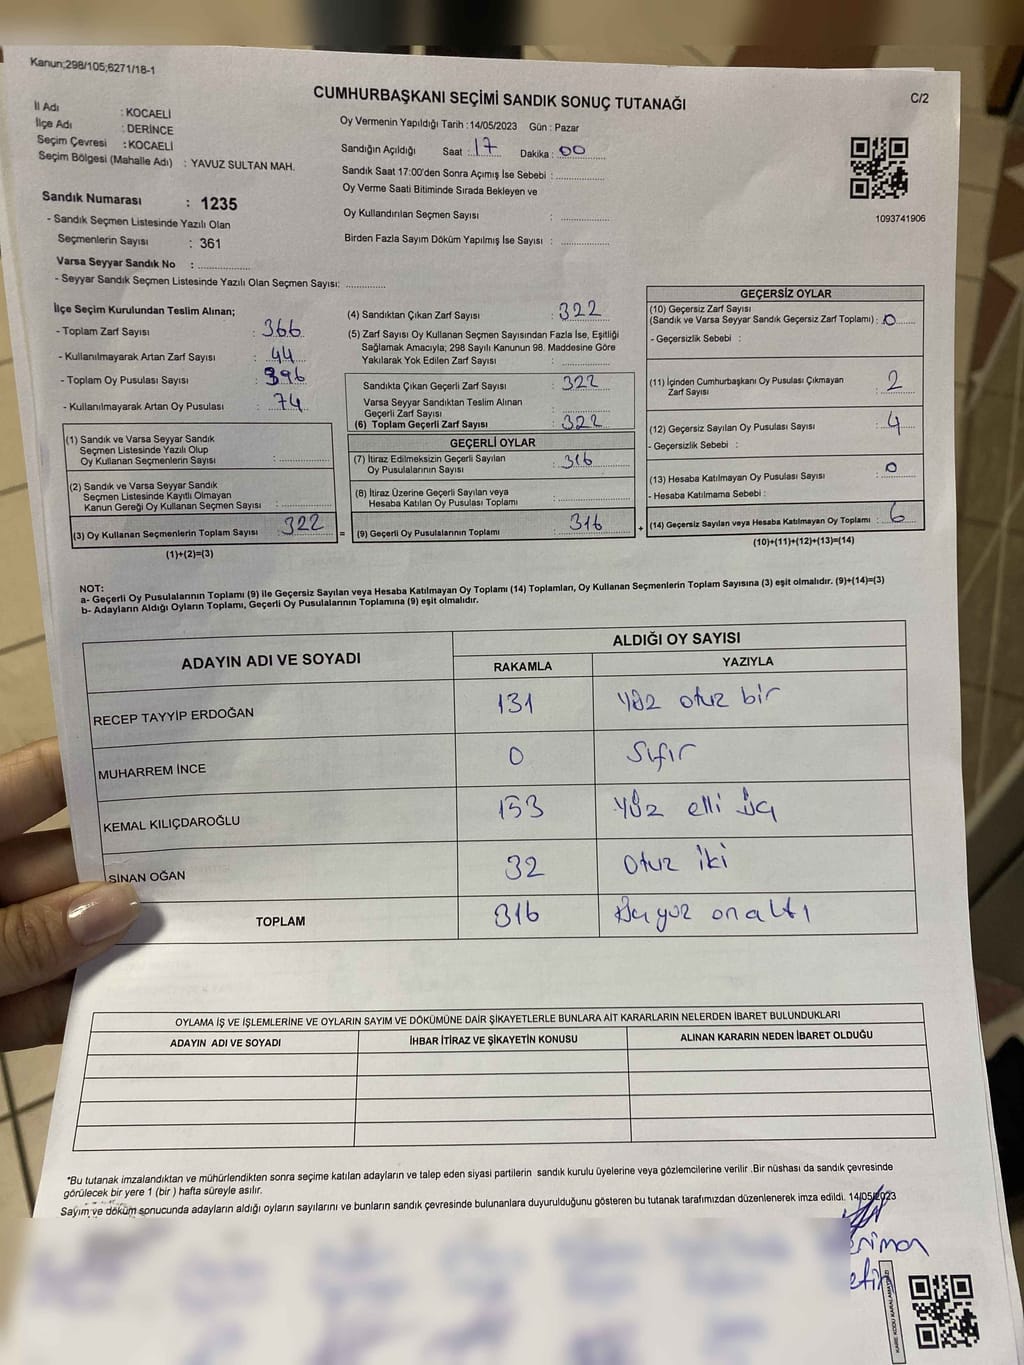 Kanun;298/105;6271/18-1
C/2
CUMHURBAŞKANI SEÇİMİ SANDIK SONUÇ TUTANAĞI
İl Adı : KOCAELİ
İlçe Adı : DERİNCE
Seçim Çevresi : KOCAELİ
Seçim Bölgesi (Mahalle Adı) : YAVUZ SULTAN MAH.
Sandık Numarası : 1235
- Sandık Seçmen Listesinde Yazılı Olan
Seçmenlerin Sayısı : 361
Varsa Seyyar Sandık No : ....................
- Seyyar Sandık Seçmen Listesinde Yazılı Olan Seçmen Sayısı: ...............
Oy Vermenin Yapıldığı Tarih : 14/05/2023 Gün : Pazar
Sandığın Açıldığı Saat : 17 Dakika : 00
Sandık Saat 17:00'den Sonra Açımış İse Sebebi : ..................
Oy Verme Saati Bitiminde Sırada Bekleyen ve
Oy Kullandırılan Seçmen Sayısı : ..................
Birden Fazla Sayım Döküm Yapılmış İse Sayısı : ..................
1093741906
İlçe Seçim Kurulundan Teslim Alınan;
- Toplam Zarf Sayısı : 366
- Kullanılmayarak Artan Zarf Sayısı : 44
- Toplam Oy Pusulası Sayısı : 396
- Kullanılmayarak Artan Oy Pusulası : 74
(1) Sandık ve Varsa Seyyar Sandık
Seçmen Listesinde Yazılı Olup
Oy Kullanan Seçmenlerin Sayısı : ..................
(2) Sandık ve Varsa Seyyar Sandık
Seçmen Listesinde Kayıtlı Olmayan
Kanun Gereği Oy Kullanan Seçmen Sayısı : ..................
(3) Oy Kullanan Seçmenlerin Toplam Sayısı : 322
(1)+(2)=(3)
=
(4) Sandıktan Çıkan Zarf Sayısı : 322
(5) Zarf Sayısı Oy Kullanan Seçmen Sayısından Fazla İse, Eşitliği
Sağlamak Amacıyla; 298 Sayılı Kanunun 98. Maddesine Göre
Yakılarak Yok Edilen Zarf Sayısı : ..................
Sandıkta Çıkan Geçerli Zarf Sayısı : 322
Varsa Seyyar Sandıktan Teslim Alınan
Geçerli Zarf Sayısı : ..................
(6) Toplam Geçerli Zarf Sayısı : 322
GEÇERLİ OYLAR
(7) İtiraz Edilmeksizin Geçerli Sayılan
Oy Pusulalarının Sayısı : 316
(8) İtiraz Üzerine Geçerli Sayılan veya
Hesaba Katılan Oy Pusulası Toplamı : ..................
(9) Geçerli Oy Pusulalarının Toplamı : 316
+
GEÇERSİZ OYLAR
(10) Geçersiz Zarf Sayısı
(Sandık ve Varsa Seyyar Sandık Geçersiz Zarf Toplamı) : 0
- Geçersizlik Sebebi :
(11) İçinden Cumhurbaşkanı Oy Pusulası Çıkmayan
Zarf Sayısı : 2
(12) Geçersiz Sayılan Oy Pusulası Sayısı : 4
- Geçersizlik Sebebi :
(13) Hesaba Katılmayan Oy Pusulası Sayısı : 0
- Hesaba Katılmama Sebebi :
(14) Geçersiz Sayılan veya Hesaba Katılmayan Oy Toplamı : 6
(10)+(11)+(12)+(13)=(14)
NOT:
a- Geçerli Oy Pusulalarının Toplamı (9) ile Geçersiz Sayılan veya Hesaba Katılmayan Oy Toplamı (14) Toplamları, Oy Kullanan Seçmenlerin Toplam Sayısına (3) eşit olmalıdır. (9)+(14)=(3)
b- Adayların Aldığı Oyların Toplamı, Geçerli Oy Pusulalarının Toplamına (9) eşit olmalıdır.
ADAYIN ADI VE SOYADI
ALDIĞI OY SAYISI
RAKAMLA YAZIYLA
RECEP TAYYİP ERDOĞAN 131 yüz otuz bir
MUHARREM İNCE 0 Sıfır
KEMAL KILIÇDAROĞLU 153 yüz elli üç
SİNAN OĞAN 32 otuz iki
TOPLAM 316 üçyüz on altı
OYLAMA İŞ VE İŞLEMLERİNE VE OYLARIN SAYIM VE DÖKÜMÜNE DAİR ŞİKAYETLERLE BUNLARA AİT KARARLARIN NELERDEN İBARET BULUNDUKLARI
ADAYIN ADI VE SOYADI İHBAR İTİRAZ VE ŞİKAYETİN KONUSU ALINAN KARARIN NEDEN İBARET OLDUĞU
*Bu tutanak imzalandıktan ve mühürlendikten sonra seçime katılan adayların ve talep eden siyasi partilerin sandık kurulu üyelerine veya gözlemcilerine verilir .Bir nüshası da sandık çevresinde
görülecek bir yere 1 (bir ) hafta süreyle asılır.
Sayım ve döküm sonucunda adayların aldığı oyların sayılarını ve bunların sandık çevresinde bulunanlara duyurulduğunu gösteren bu tutanak tarafımızdan düzenlenerek imza edildi. 14/05/2023